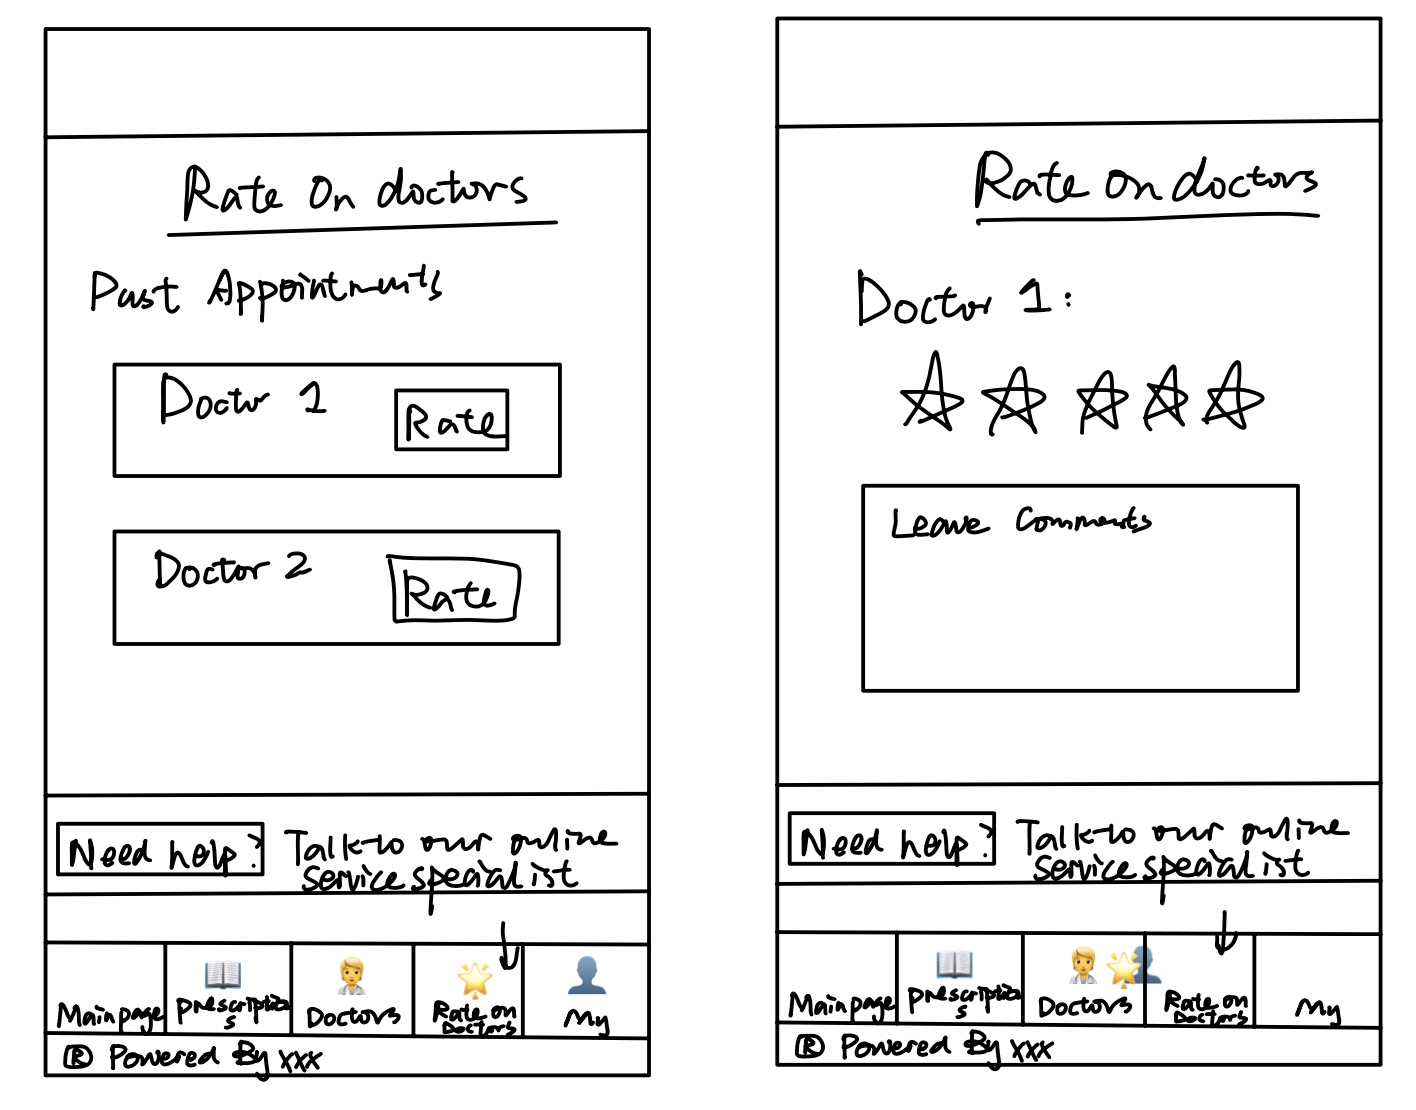 Rate On doctors
Past Appointments
Doctor 1
Rate
Doctor 2
Rate
Need help?
Talk to our online
service specialist
Main page
Prescription
s
Doctors
Rate on
Doctors
My
® Powered By xxx
Rate on doctors
Doctor 1:
Leave Comments
Need help?
Talk to our online
service specialist
Main page
Prescription
s
Doctors
Rate on
Doctors
My
® Powered By xxx